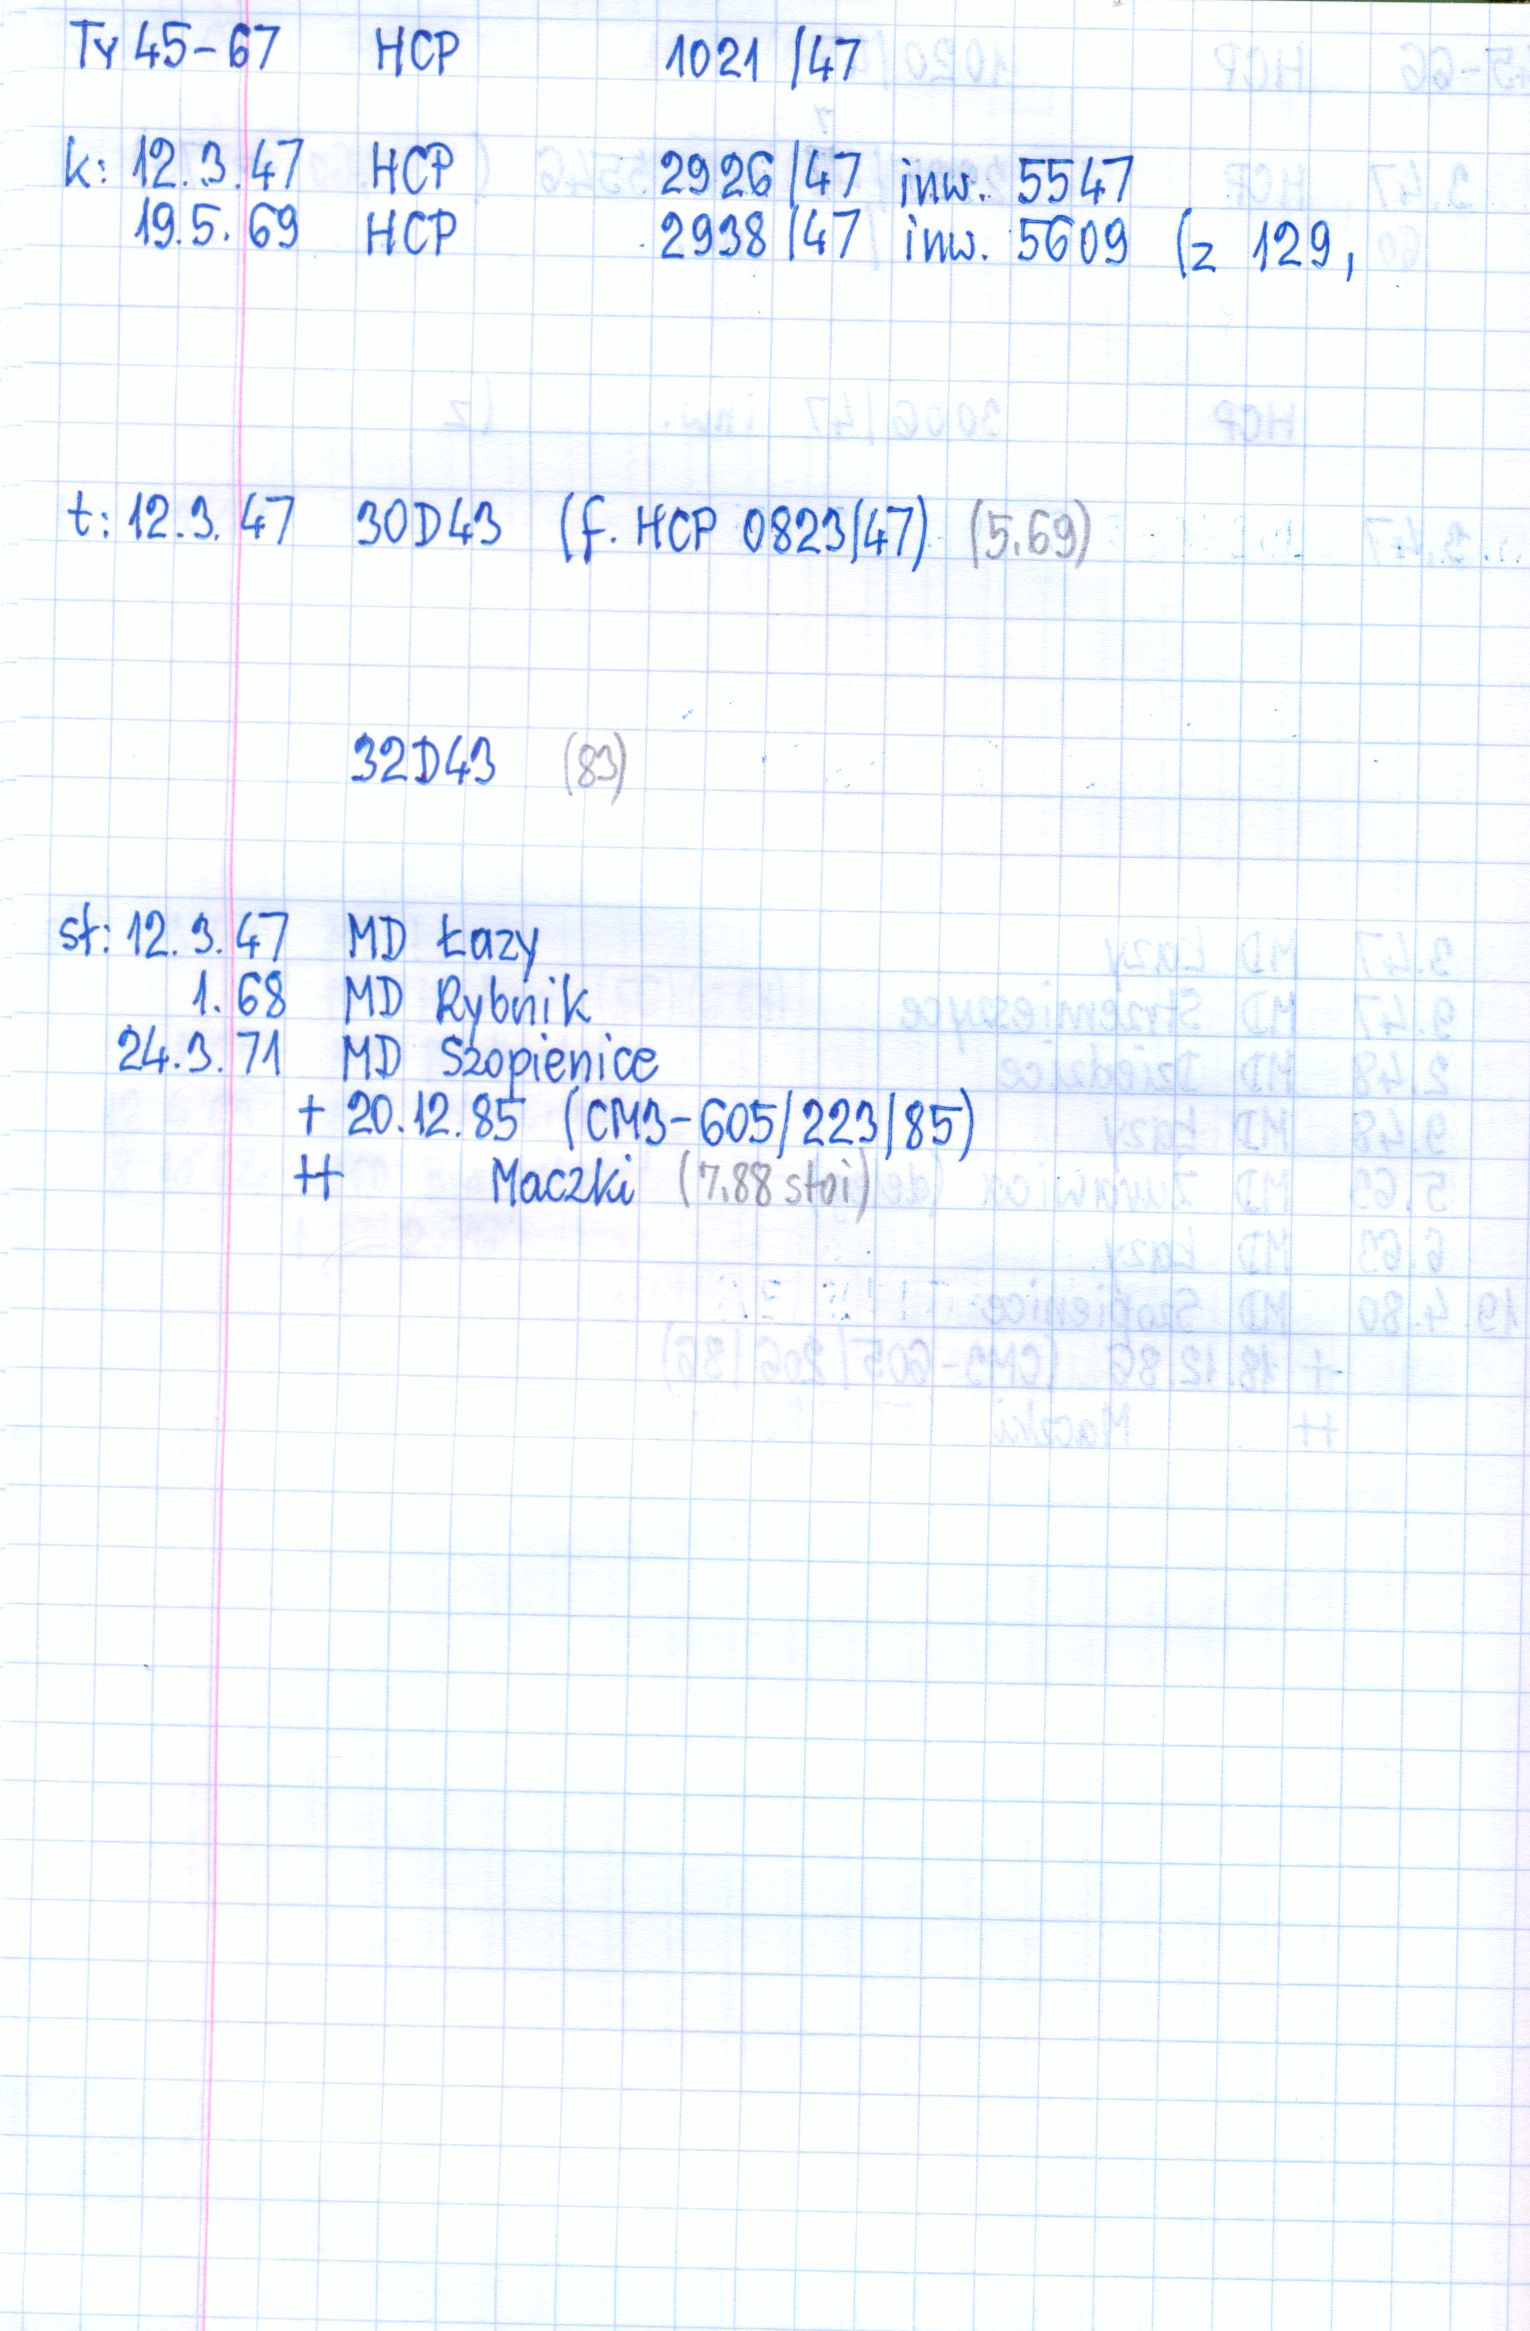 Ty 45-67 HCP 1021/47
k: 12.3.47 HCP 2926/47 inw. 5547
19.5.69 HCP 2938/47 inw. 5609 (z 129,
t: 12.3.47 30D43 (f. HCP 0823/47) (5.69)
32D43 (83)
st: 12.3.47 MD Łazy
1.68 MD Rybnik
24.3.71 MD Szopienice
+ 20.12.85 (CM3-605/223/85)
++ Maczki (7.88 stoi)